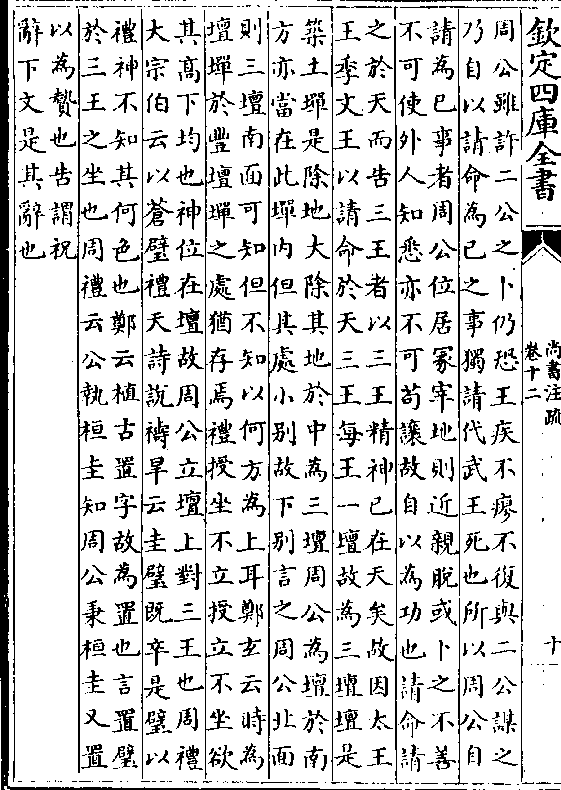 欽定四庫全書
尚書注疏
卷十二
十
周公雖許二公之卜仍恐王疾不瘳不復與二公謀之
乃自以請命為己之事獨請代武王死也所以周公自
請為己事者周公位居冢宰地則近親脫或卜之不善
不可使外人知悉亦不可苟讓故自以為功也請命請
之於天而告三王者以三王精神已在天矣故因太王
王季文王以請命於天三王每王一壇故為三壇壇是
築土墠是除地大除其地於中為三壇周公為壇於南
方亦當在此墠內但其處小別故下別言之周公北面
則三壇南面可知但不知以何方為上耳鄭玄云時為
壇墠於豐壇墠之處猶存焉禮授坐不立授立不坐欲
其高下均也神位在壇故周公立壇上對三王也周禮
大宗伯云以蒼璧禮天詩說禱旱云圭璧既卒是璧以
禮神不知其何色也鄭云植古置字故為置也言置璧
於三王之坐也周禮云公執桓圭知周公秉桓圭又置
以為贄也告謂祝
辭下文是其辭也